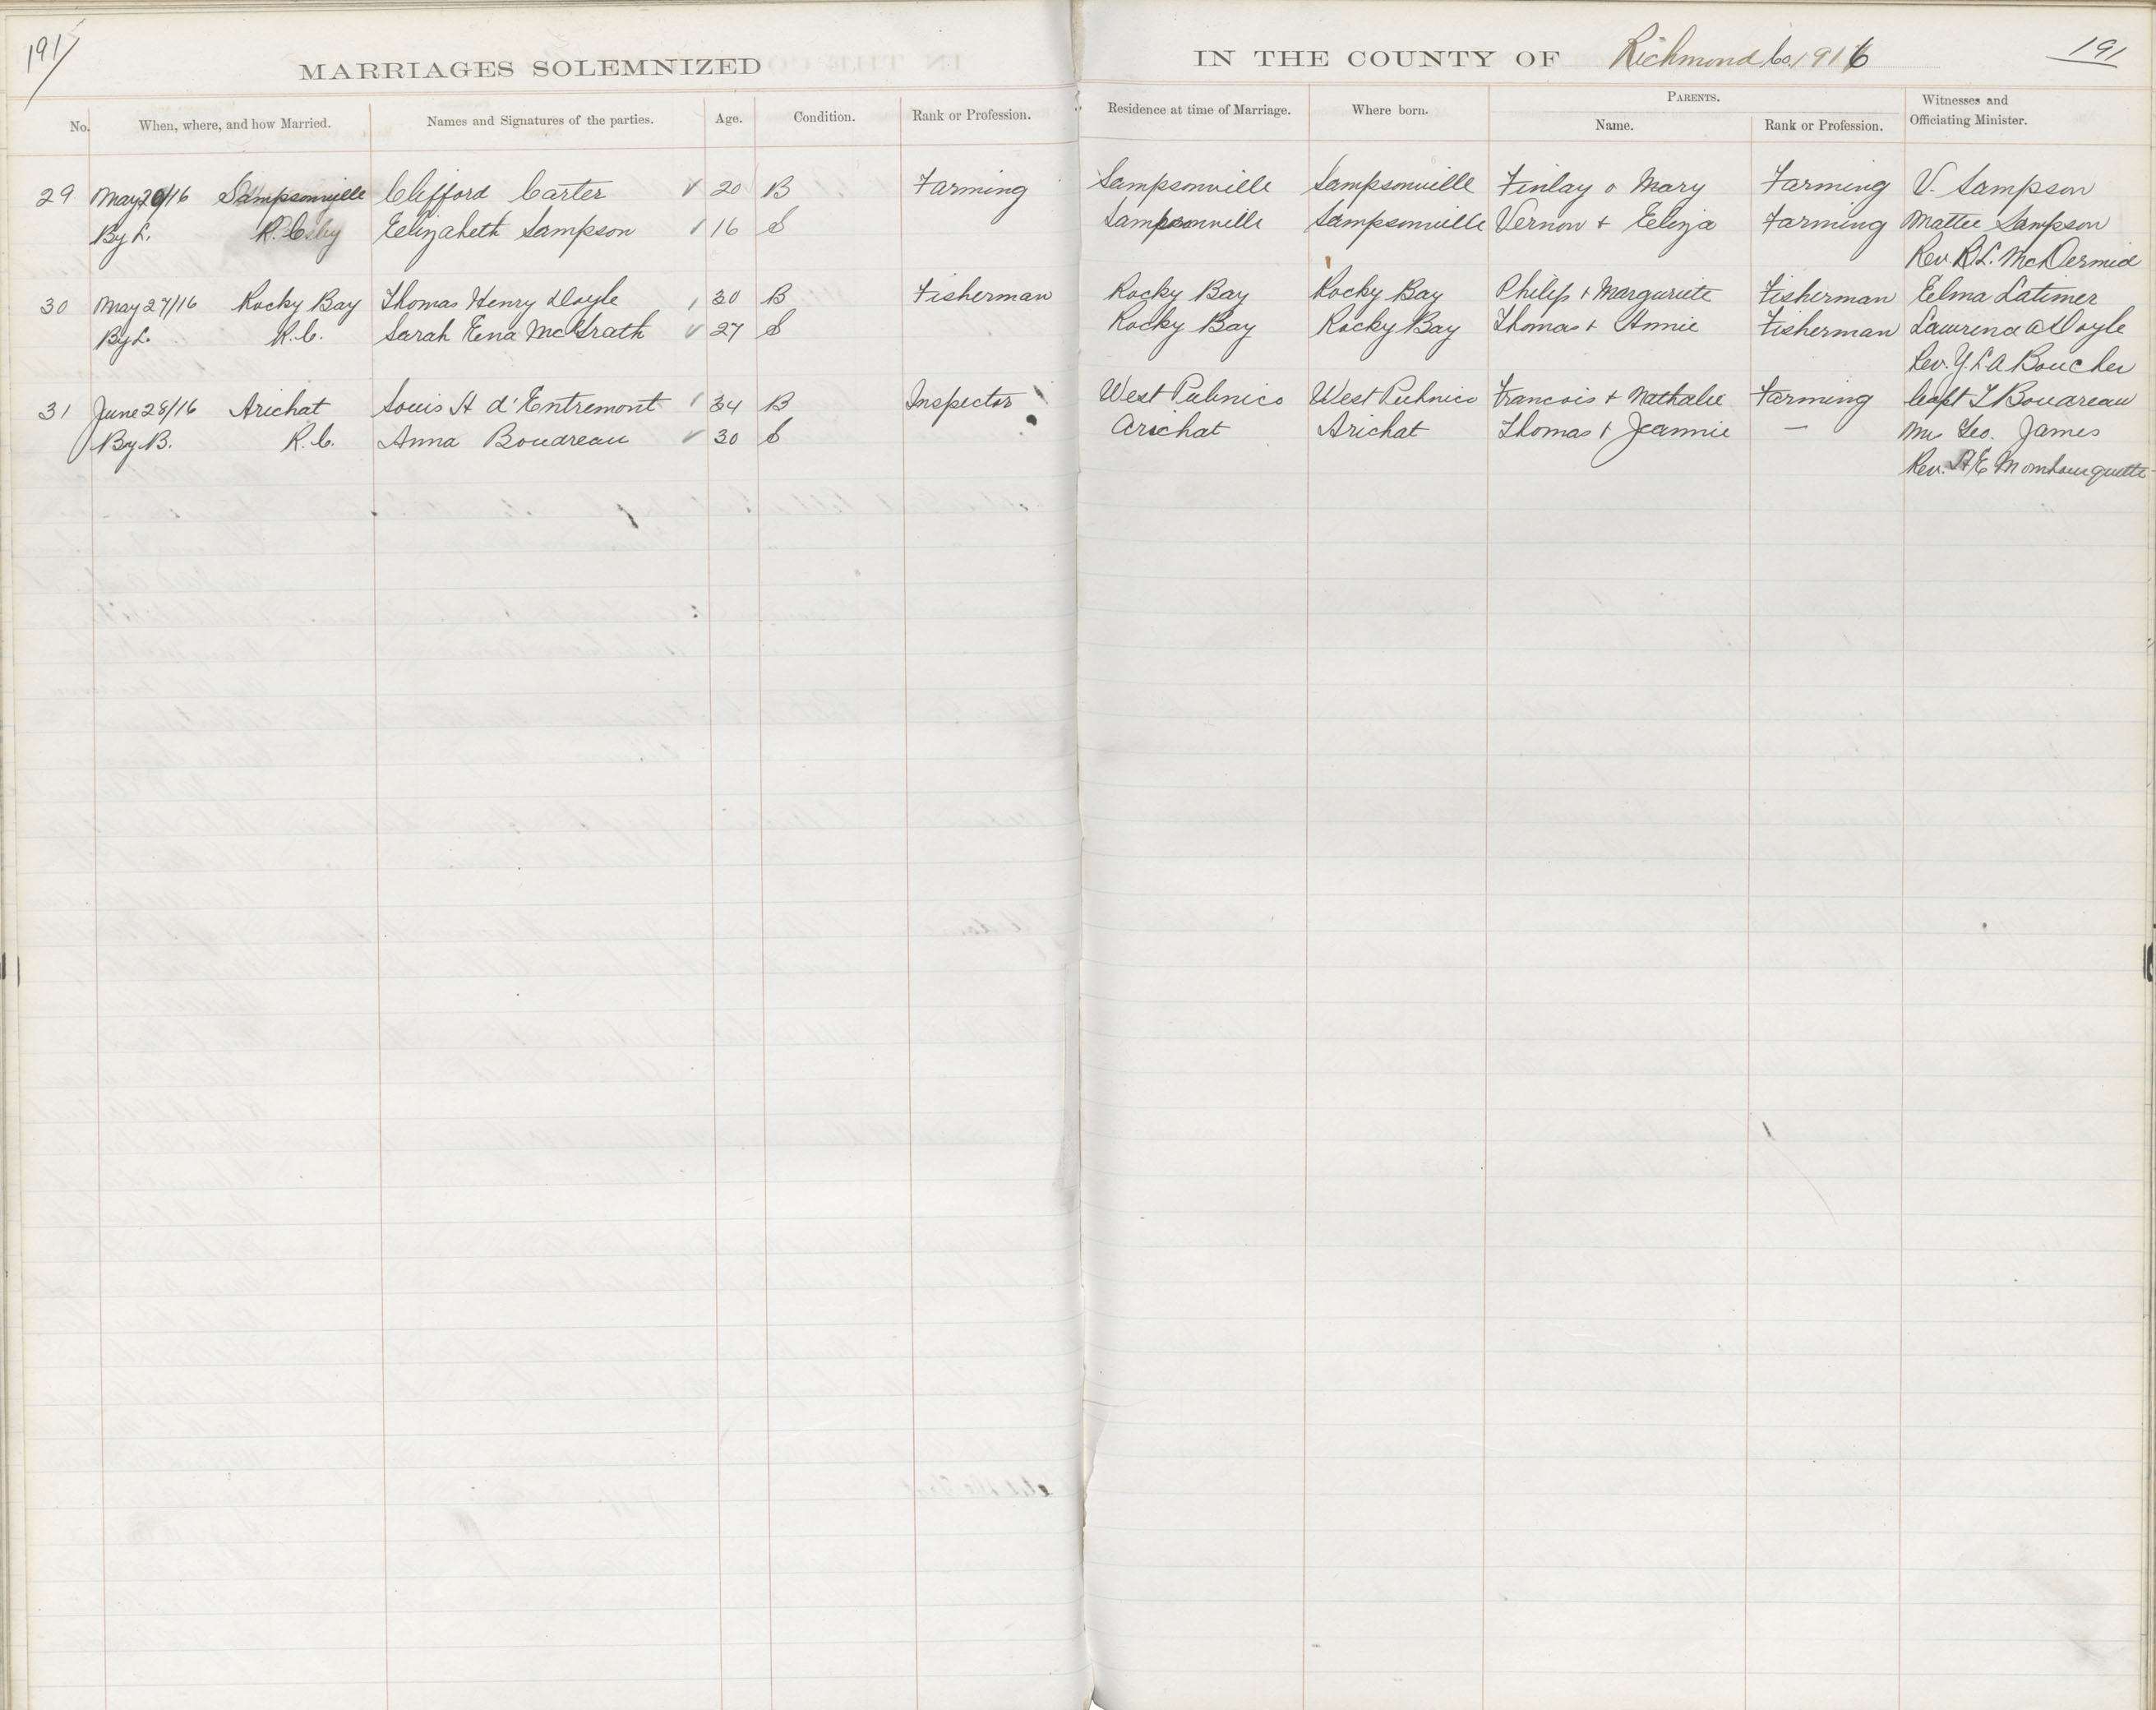 191
MARRIAGES SOLEMNIZED IN THE COUNTY OF Richmond Co. 1916 191
No. When, where, and how Married. Names and Signatures of the parties. Age. Condition. Rank or Profession. Residence at time of Marriage. Where born. PARENTS. Name. Rank or Profession. Witnesses and Officiating Minister.
29 May 20/16 Sampsonville Clifford Carter 20 B Farming Sampsonville Sampsonville Finlay & Mary Farming V. Sampson
By L. R.C. Elizabeth Sampson 16 S Sampsonville Sampsonville Vernon + Eliza Farming Mattie Sampson
Rev. R.L. McDermid
30 May 27/16 Rocky Bay Thomas Henry Doyle 30 B Fisherman Rocky Bay Rocky Bay Philip + Marguriete Fisherman Elma Latimer
By L. R.C. Sarah Ena McGrath 27 S Rocky Bay Rocky Bay Thomas + Annie Fisherman Lawrence A Doyle
Rev. Y. L A Boucher
31 June 28/16 Arichat Louis A d'Entremont 34 B Inspector West Pubnico West Pubnico Francois + Nathalie Farming Capt T Boudreau
By B. R.C. Anna Boudreau 30 S Arichat Arichat Thomas + Jeannie — Mrs Geo. James
Rev. A E Mombourquette